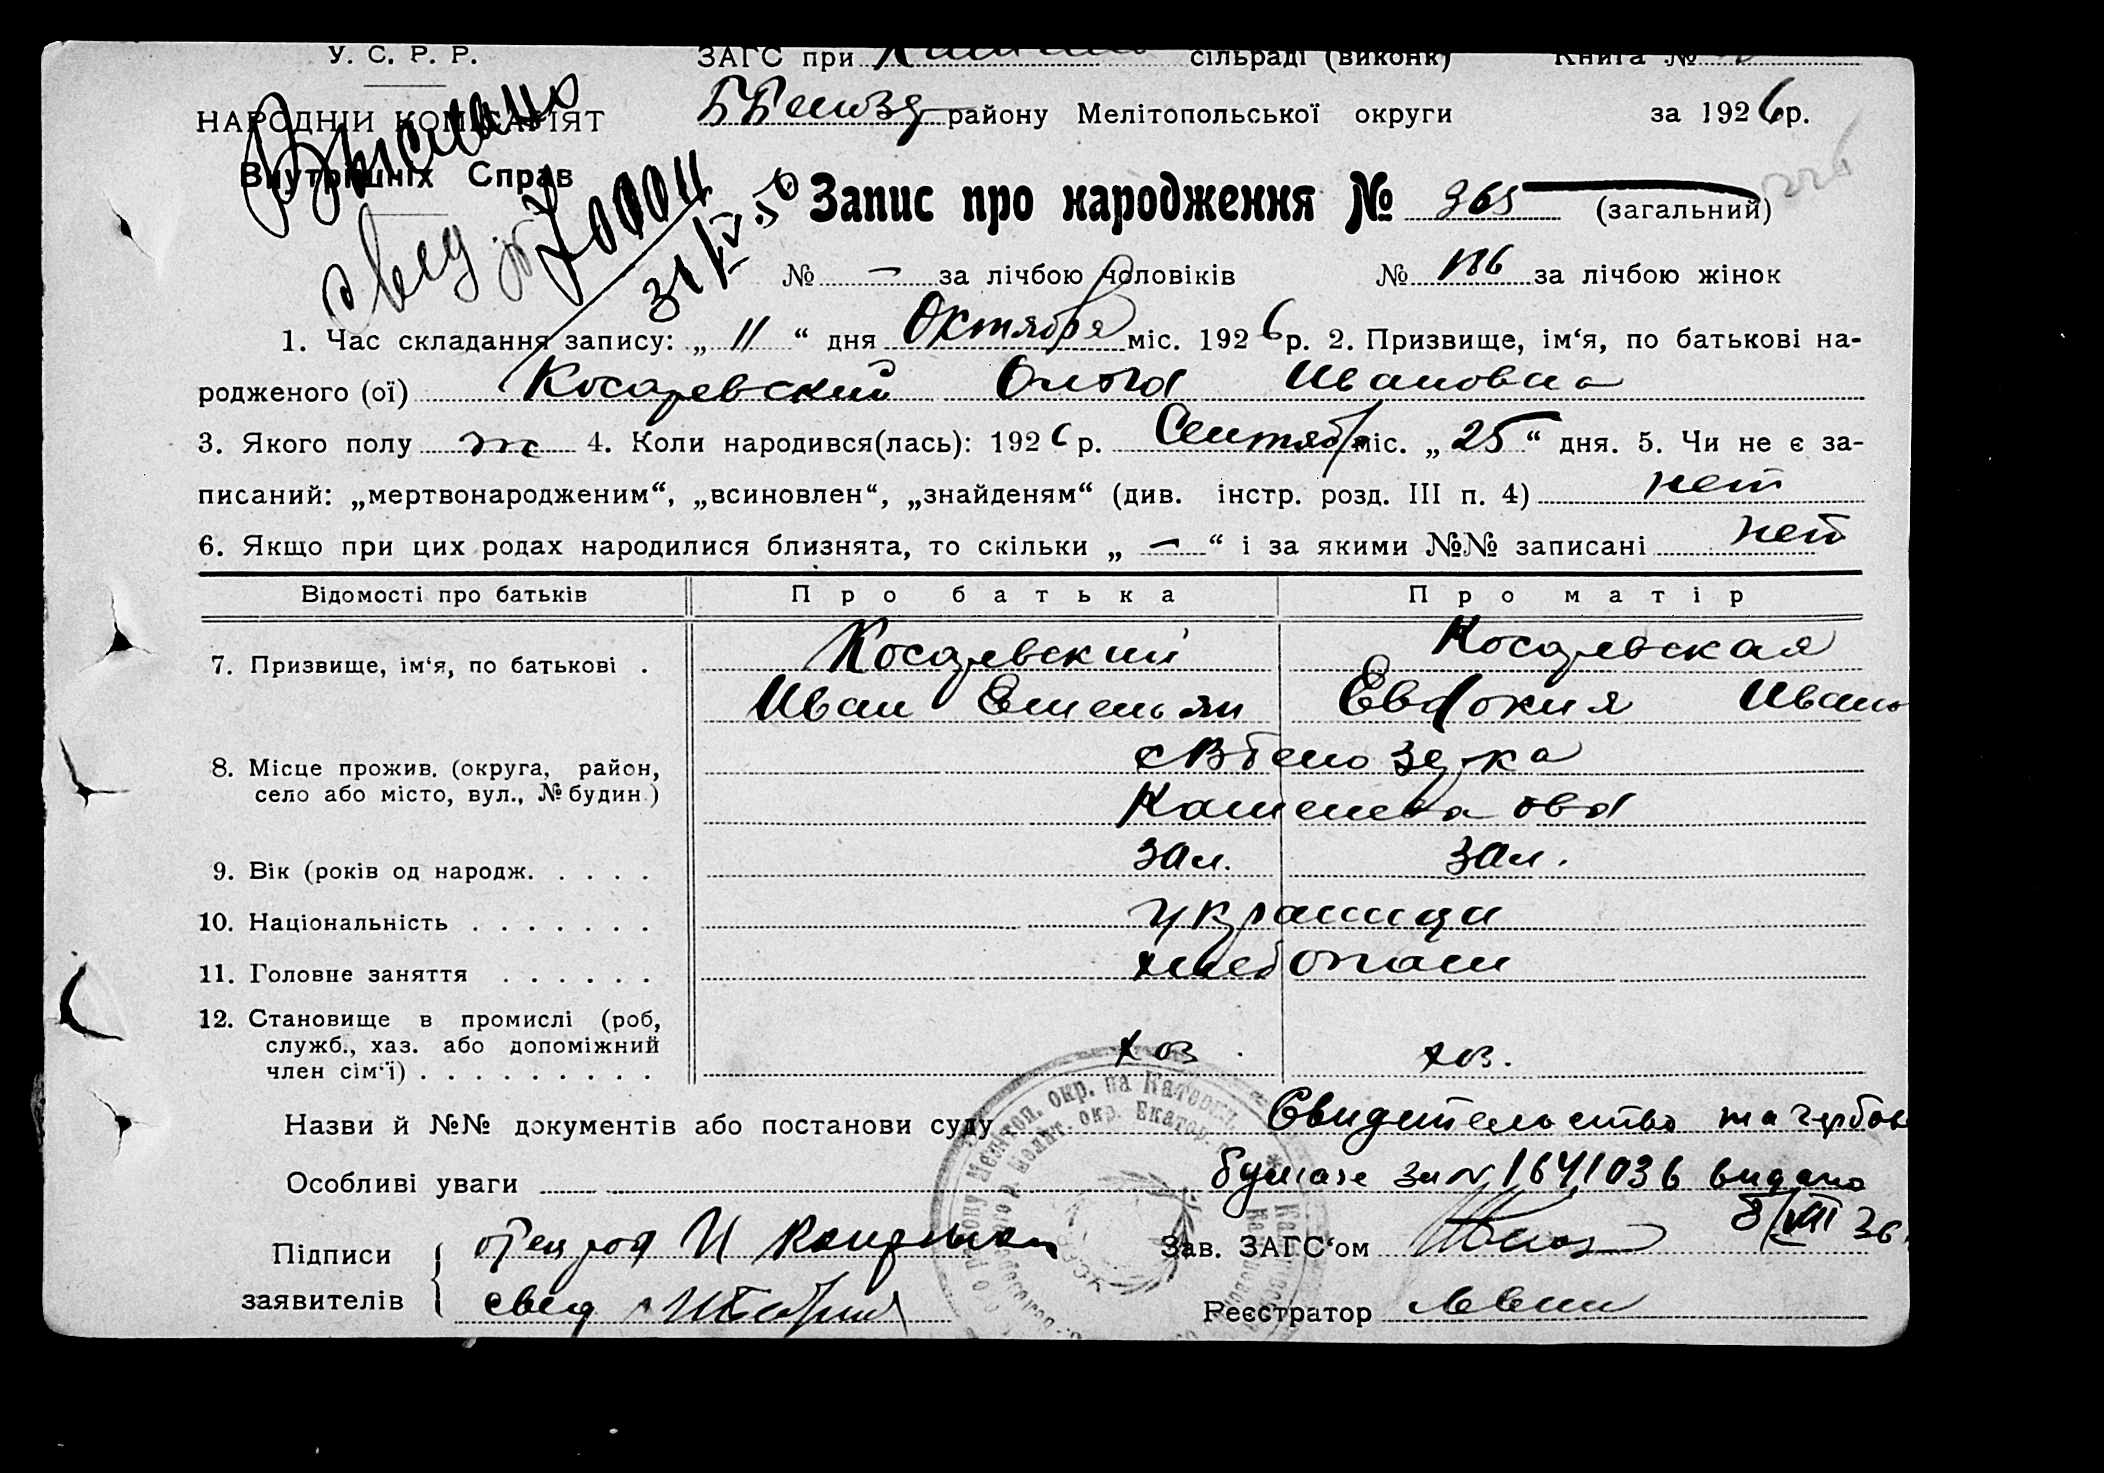 У. С. Р. Р. ЗАГС при сільраді (виконк) Книга №
НАРОДНІЙ КОМІСАРІЯТ
Внутрішніх Справ
району Мелітопольської округи за 1926 р.
Выслано
свид № 31/IV 56
Запис про народження № 365 (загальний)
№ — за лічбою чоловіків № 186 за лічбою жінок
1. Час складання запису: „ 11 “ дня Октября міс. 1926 р. 2. Призвище, ім‘я, по батькові на-
родженого (ої) Косаревский Ольга Ивановна
3. Якого полу ж 4. Коли народився(лась): 1926 р. Сентяб міс. „ 25 “ дня. 5. Чи не є за-
писаний: „мертвонародженим“, „всиновлен“, „знайденям“ (див. інстр. розд. III п. 4) нет
6. Якщо при цих родах народилися близнята, то скільки „ — “ і за якими №№ записані нет
Відомості про батьків Про батька Про матір
7. Призвище, ім‘я, по батькові . Косаревский Косаревская
Иван Емельян Евдокия Ивано
8. Місце прожив. (округа, район,
село або місто, вул., № будин.)
9. Вік (років од народж. . . . . 30 л. 30 л.
10. Національність . . . . . . . украинци
11. Головне заняття . . . . . . хлебопаш
12. Становище в промислі (роб,
служб., хаз. або допоміжний
член сім‘ї) . . . . . . . . . . хоз хоз.
Назви й №№ документів або постанови суду Свидетельство на гербов
Особливі уваги бумаге за № 1641036 видано
8/VIII 36.
Підписи
заявителів
отец И
свид
Зав. ЗАГС‘ом
Реєстратор